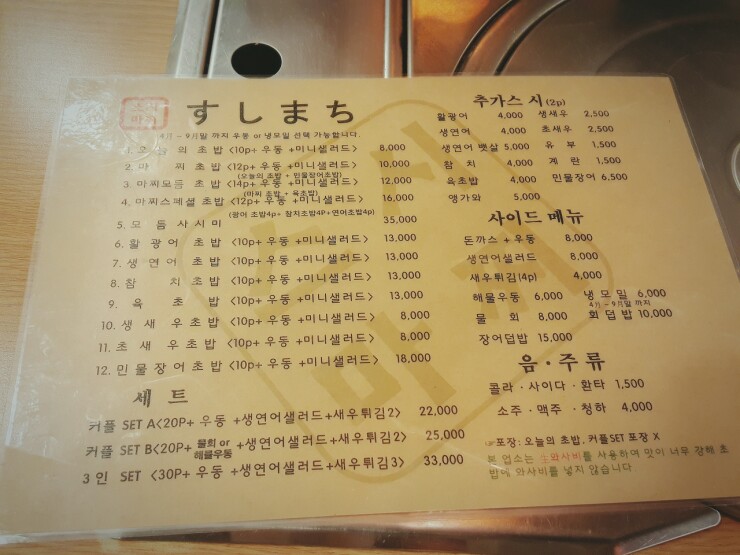 스시
마찌
すしまち
4月 ~ 9月말 까지 우동 or 냉모밀 선택 가능합니다.
1. 오늘의 초밥 <10p+ 우동 +미니샐러드> 8,000
2. 마 찌 초밥 <12p+ 우동 +미니샐러드> 10,000
(오늘의 초밥 + 민물장어초밥)
3. 마찌모듬 초밥 <14p+ 우동 +미니샐러드> 12,000
(마찌 초밥 + 육초밥)
4. 마찌스페셜 초밥 <12p+ 우동 +미니샐러드> 16,000
(광어 초밥4p+ 참치초밥4P+연어초밥4p)
5. 모 듬 사시미 35,000
6. 활 광어 초밥 <10p+ 우동 +미니샐러드> 13,000
7. 생 연어 초밥 <10p+ 우동 +미니샐러드> 13,000
8. 참 치 초밥 <10p+ 우동 +미니샐러드> 13,000
9. 육 초 밥 <10p+ 우동 +미니샐러드> 13,000
10. 생 새 우초밥 <10p+ 우동 +미니샐러드> 8,000
11. 초 새 우초밥 <10p+ 우동 +미니샐러드> 8,000
12. 민 물 장어초밥 <10p+ 우동 +미니샐러드> 18,000
세 트
커플 SET A<20P+ 우동 +생연어샐러드+새우튀김2> 22,000
커플 SET B<20P+ 물회 or 해물우동 +생연어샐러드+새우튀김2> 25,000
3 인 SET <30P+ 우동 +생연어샐러드+새우튀김3> 33,000
추가스 시(2p)
활광어 4,000 생새우 2,500
생연어 4,000 초새우 2,500
생연어 뱃살 5,000 유 부 1,500
참 치 4,000 계 란 1,500
육초밥 4,000 민물장어 6,500
앵가와 5,000
사이드 메뉴
돈까스 + 우동 8,000
생연어샐러드 8,000
새우튀김(4p) 4,000
해물우동 6,000 냉 모밀 6,000
4月 ~ 9月말 까지
물 회 8,000 회 덥밥 10,000
장어덥밥 15,000
음 · 주 류
콜라 · 사이다 · 환타 1,500
소주 · 맥주 · 청하 4,000
☞포장: 오늘의 초밥, 커플SET 포장 X
본 업소는 生와사비를 사용하여 맛이 너무 강해 초
밥에 와사비를 넣지 않습니다